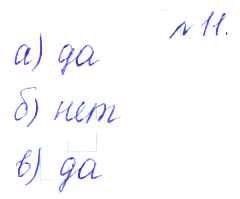 № 11.
а) да
б) нет
в) да